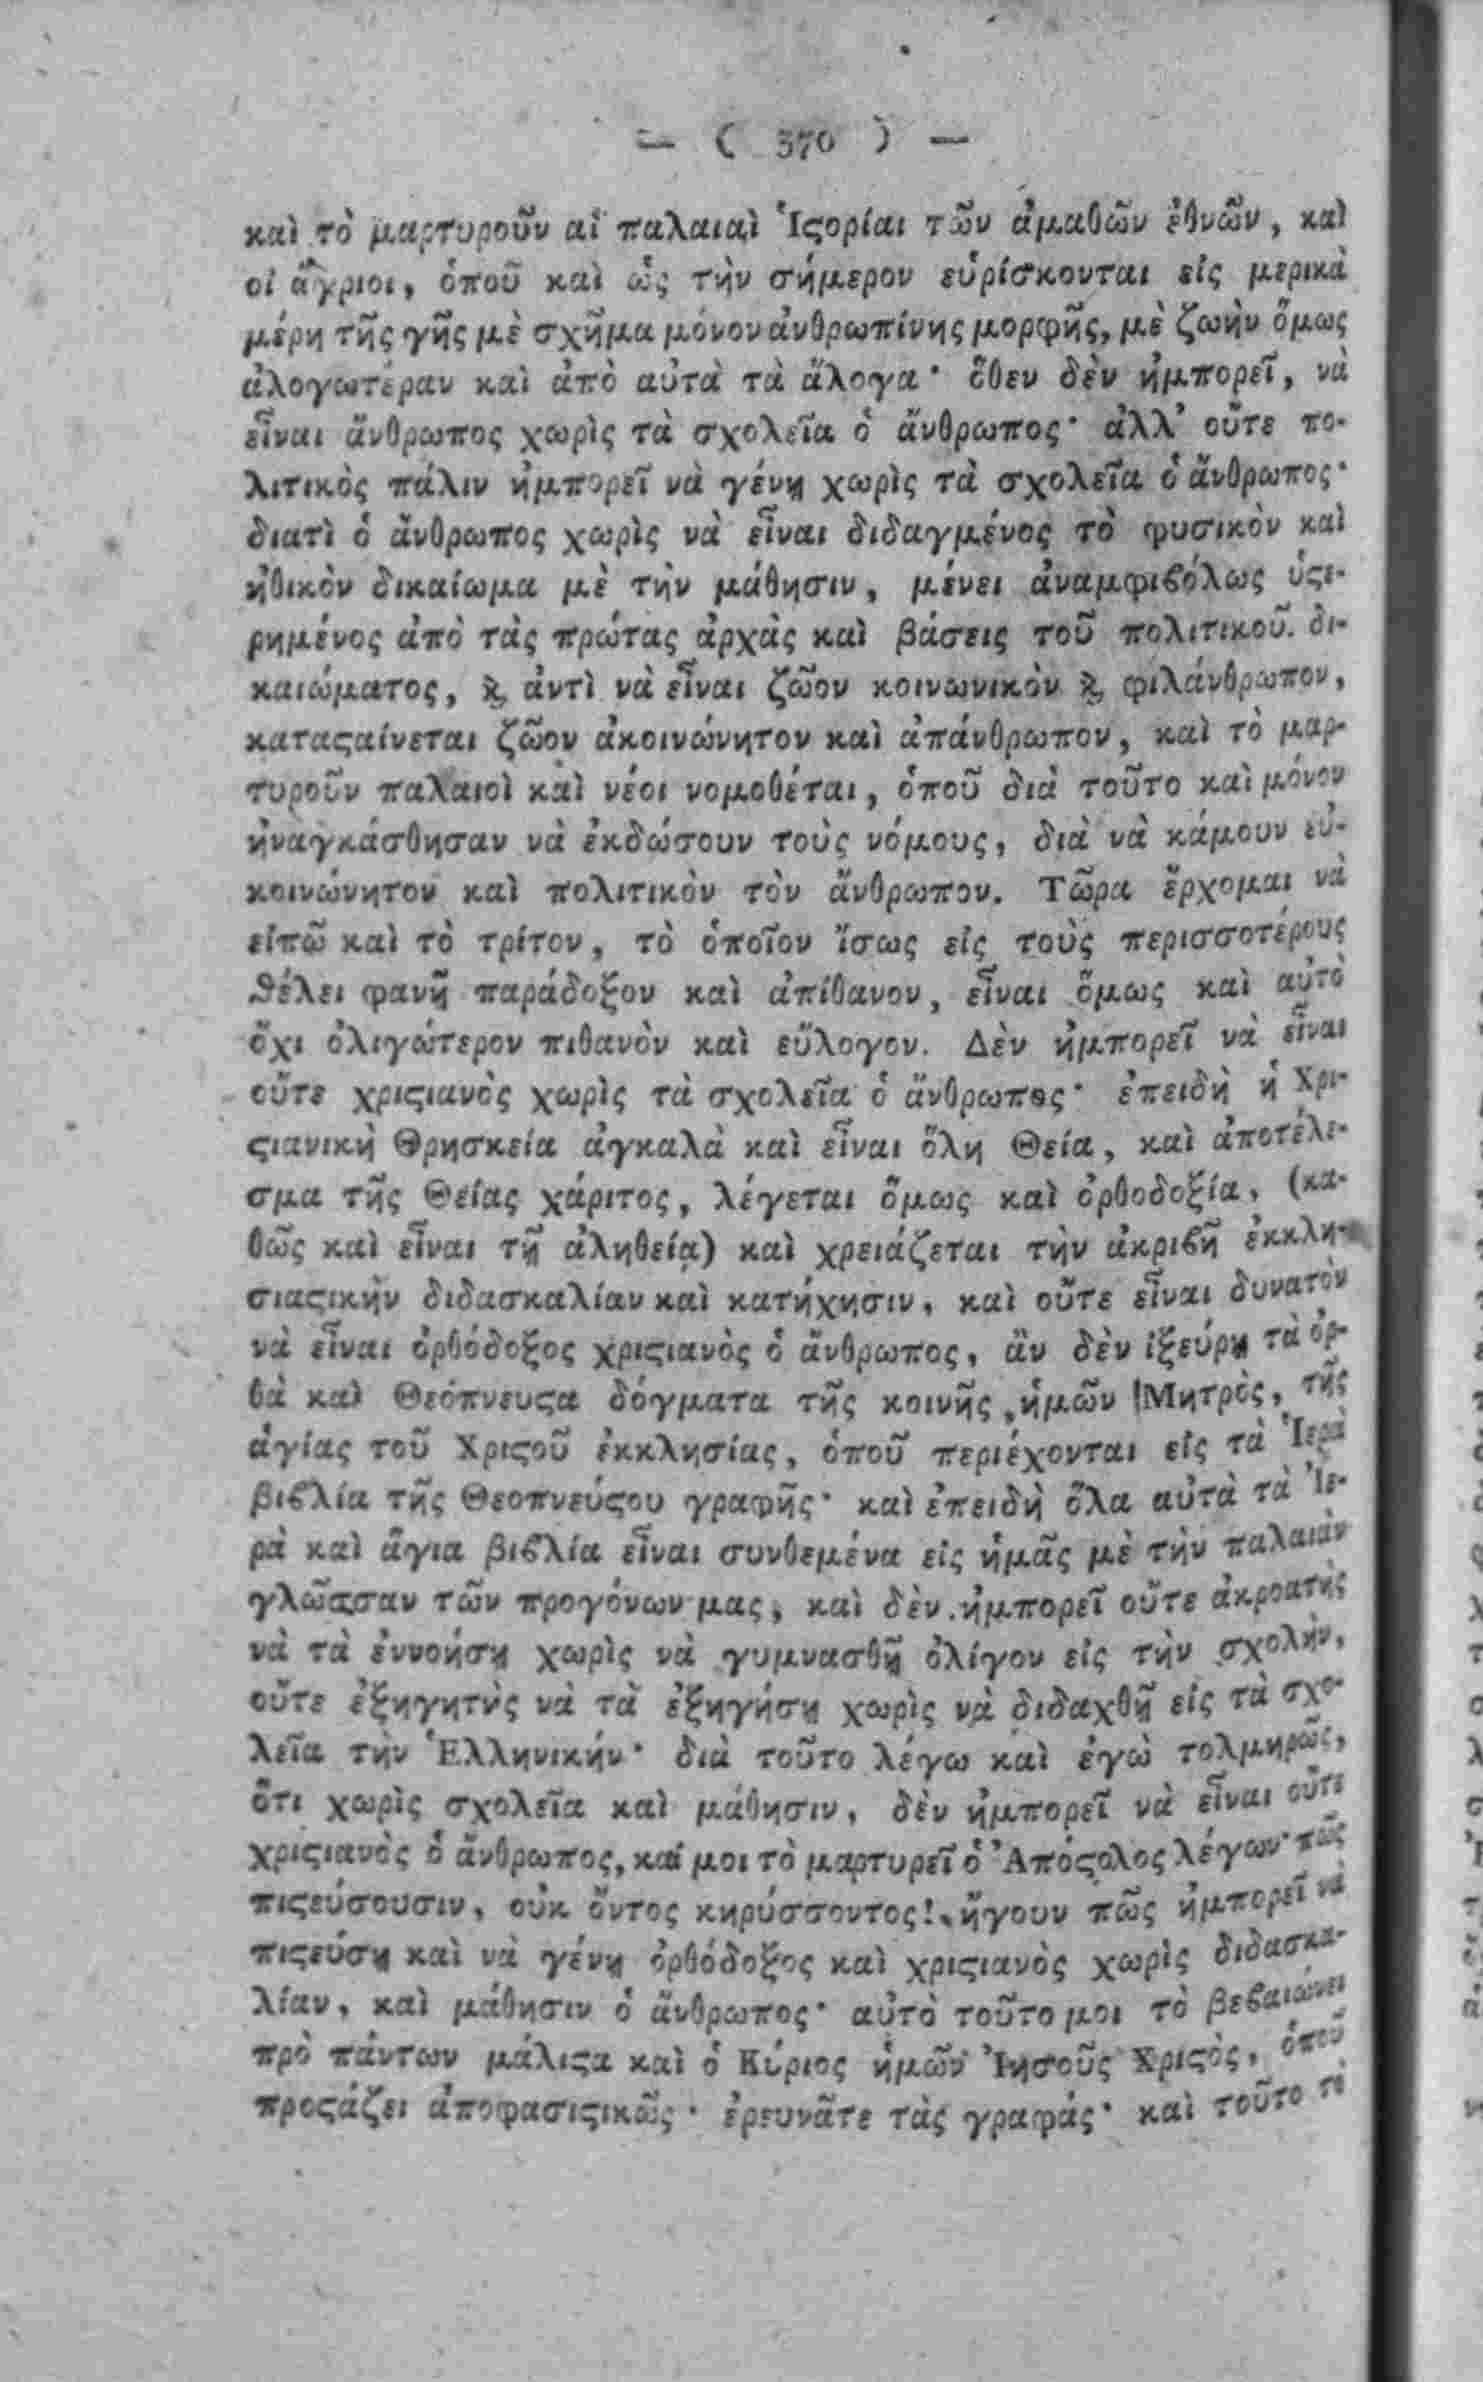 — ( 370 ) —
καὶ τὸ μαρτυροῦν αἱ παλαιαὶ Ἱϛορίαι τῶν ἀμαθῶν ἐθνῶν, καὶ
οἱ ἄγριοι, ὁποῦ καὶ ὡς τὴν σήμερον εὑρίσκονται εἰς μερικὰ
μέρη τῆς γῆς μὲ σχῆμα μόνον ἀνθρωπίνης μορφῆς, μὲ ζωὴν ὅμως
ἀλογωτέραν καὶ ἀπὸ αὐτὰ τὰ ἄλογα· ὅθεν δὲν ἠμπορεῖ, νὰ
εἶναι ἄνθρωπος χωρὶς τὰ σχολεῖα ὁ ἄνθρωπος· ἀλλ' οὔτε πο-
λιτικὸς πάλιν ἠμπορεῖ νὰ γένῃ χωρὶς τὰ σχολεῖα ὁ ἄνθρωπος·
διατὶ ὁ ἄνθρωπος χωρὶς νὰ εἶναι διδαγμένος τὸ φυσικὸν καὶ
ἠθικὸν δικαίωμα μὲ τὴν μάθησιν, μένει ἀναμφιβόλως ὑϛε-
ρημένος ἀπὸ τὰς πρώτας ἀρχὰς καὶ βάσεις τοῦ πολιτικοῦ. δι-
καιώματος, ϗ ἀντὶ νὰ εἶναι ζῶον κοινωνικὸν ϗ φιλάνθρωπον,
καταϛαίνεται ζῶον ἀκοινώνητον καὶ ἀπάνθρωπον, καὶ τὸ μαρ-
τυροῦν παλαιοὶ καὶ νέοι νομοθέται, ὁποῦ διὰ τοῦτο καὶ μόνον
ἠναγκάσθησαν νὰ ἐκδώσουν τοὺς νόμους, διὰ νὰ κάμουν εὐ-
κοινώνητον καὶ πολιτικὸν τὸν ἄνθρωπον. Τῶρα ἔρχομαι νὰ
εἰπῶ καὶ τὸ τρίτον, τὸ ὁποῖον ἴσως εἰς τοὺς περισσοτέρους
ϑέλει φανῆ παράδοξον καὶ ἀπίθανον, εἶναι ὅμως καὶ αὐτὸ
ὄχι ὀλιγώτερον πιθανὸν καὶ εὔλογον. Δὲν ἠμπορεῖ νὰ εἶναι
οὔτε χριϛιανὸς χωρὶς τὰ σχολεῖα ὁ ἄνθρωπος· ἐπειδὴ ἡ Χρι-
ϛιανικὴ Θρησκεία ἀγκαλὰ καὶ εἶναι ὅλη Θεία, καὶ ἀποτέλε-
σμα τῆς Θείας χάριτος, λέγεται ὅμως καὶ ὀρθοδοξία, (κα-
θῶς καὶ εἶναι τῇ ἀληθείᾳ) καὶ χρειάζεται τὴν ἀκριβῆ ἐκκλη-
σιαϛικὴν διδασκαλίαν καὶ κατήχησιν, καὶ οὔτε εἶναι δυνατὸν
νὰ εἶναι ὀρθόδοξος χριϛιανὸς ὁ ἄνθρωπος, ἂν δὲν ἰξεύρῃ τὰ ὀρ-
θὰ καὶ Θεόπνευϛα δόγματα τῆς κοινῆς ἡμῶν Μητρὸς, τῆς
ἁγίας τοῦ Χριϛοῦ ἐκκλησίας, ὁποῦ περιέχονται εἰς τὰ Ἱερὰ
βιβλία τῆς Θεοπνεύϛου γραφῆς· καὶ ἐπειδὴ ὅλα αὐτὰ τὰ Ἱε-
ρὰ καὶ ἅγια βιβλία εἶναι συνθεμένα εἰς ἡμᾶς μὲ τὴν παλαιὰν
γλῶσσαν τῶν προγόνων μας, καὶ δὲν ἠμπορεῖ οὔτε ἀκροατὴς
νὰ τὰ ἐννοήσῃ χωρὶς νὰ γυμνασθῇ ὀλίγον εἰς τὴν σχολὴν,
οὔτε ἐξηγητὴς νὰ τὰ ἐξηγήσῃ χωρὶς νὰ διδαχθῇ εἰς τὰ σχο-
λεῖα τὴν Ἑλληνικήν· διὰ τοῦτο λέγω καὶ ἐγὼ τολμηρῶς,
ὅτι χωρὶς σχολεῖα καὶ μάθησιν, δὲν ἠμπορεῖ νὰ εἶναι οὔτε
χριϛιανὸς ὁ ἄνθρωπος, καί μοι τὸ μαρτυρεῖ ὁ Ἀπόϛολος λέγων· πῶς
πιϛεύσουσιν, οὐκ ὄντος κηρύσσοντος!, ἤγουν πῶς ἠμπορεῖ νὰ
πιϛεύσῃ καὶ νὰ γένῃ ὀρθόδοξος καὶ χριϛιανὸς χωρὶς διδασκα-
λίαν, καὶ μάθησιν ὁ ἄνθρωπος· αὐτὸ τοῦτο μοι τὸ βεβαιώνει
πρὸ πάντων μάλιϛα καὶ ὁ Κύριος ἡμῶν Ἰησοῦς Χριϛὸς, ὁποῦ
προϛάζει ἀποφασιϛικῶς· ἐρευνᾶτε τὰς γραφάς· καὶ τοῦτο τὸ